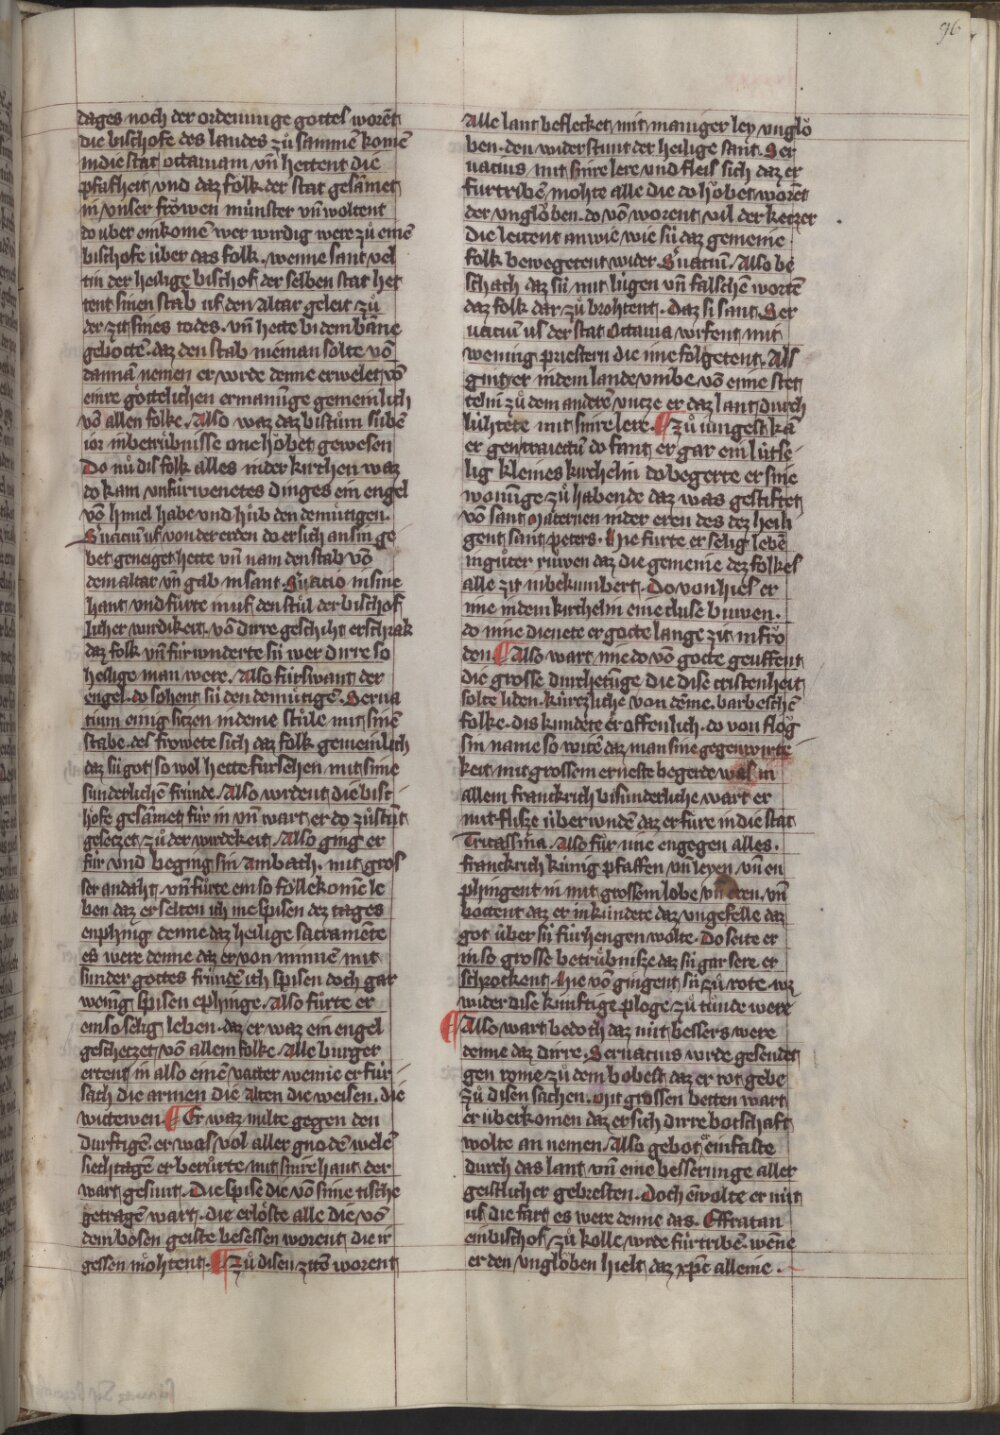 96
dages noch der ordenunge gottes worēt
die bischofe des landes zů sammē komē
in die stat octauiam vn̄ hettent die
pfafheit vnd daz folk der stat gesāmet
in vnser frowen múnster vn̄ woltent
do úber einkomē wer wirdig were zů eime
bischofe úber das folk. wenne sant vel
tin der heilige bischof der selben stat het
tent sinen stab uf den altar geleit zů
der zit sines todes. vn̄ hette bi dem bāne
gebottē. daz den stab nieman solte vō
dannā nemen er wrde denne erwelet vō
einre göttelichen ermanūge gemeinlich
vō allen folke. Also waz daz bistům sibē
ior in betrůbnisse one höbet gewesen
Do nů dis folk alles in der kirchen waz
do kam vnfúrwenetes dinges ein engel
vō himel habe vnd hůb den demůtigen.
Suaciū uf von der erden do er sich an sin ge
bet geneiget hette vn̄ nam den stab vō
dem altar vn̄ gab in sant. Suatio in sine
hant vnd fůrte in uf den stůl der bischof
licher wirdikeit. vō dirre geschiht erschrak
daz folk vn̄ fúrwnderte sú wer dirre so
heilige man were. Also fúrswant der
engel. do sohent sú den demůtigē. Serua
tium einig sitzen in deme stůle mit sinē
stabe. des frowete sich daz folk gemeinlich
daz sú got so wol hette fúrsehen mit sime
sunderlichē frúnde. Also wrdent die bist
höfe gesāmet fúr in vn̄ wart er do zů stūt
gesetzet zů der wirdekeit. Also ging er
fúr vnd beging sin ambach. mit gros
ser andaht vn̄ fůrte ein so föllekomē le
ben daz er selten ich me spisen dez tages
enphing denne daz heilige sacramēte
es were denne daz er von minnē mit
sunder gottes frúndē ich spisen doch gar
wenig spisen ephinge. Also fůrte er
ein so selig leben. daz er waz ein engel
geschetzet vō allem folke. Alle burger
ertent in also einē vatter wenne er fúr
sach die armen die alten die weisen. die
witewen. ¶ Er waz milte gegen den
durftigē. er was vol aller gnodē wele
siechtagē er berůrte mit sinre hant der
wart gesunt. Die spise die vō sime tische
getragē wart. die erlöste alle die vō
dem bösen geiste besessen worent die ir
gessen möhtent. ¶ Zů disen zitē worent
Alle lant beflecket mit maniger ley vnglö
ben. den widerstunt der heilige sant. Ser
uacius mit sinre lere vnd fleis sich daz er
fúrtribē mohte alle die do höbet worēt
der vnglöben. do vō worent vil der ketzer
die leitent an wie wie sú daz gemeine
folk bewegetent wider. Suatiū. Also be
schach daz sú mit lúgen vn̄ falschē wortē
daz folk dar zů brohtent. Daz si sant. Ser
uatiū us der stat Octauia wrfent mit
wening priestern die ime folgetent. Als
ging er in dem lande vmbe vō eime stet
telin zů dem anderē vntze er daz lant durch
lúhtete mit sinre lere. ¶ Zů iungest kā
er gen traiectū do fant er gar ein lútse
lig kleines kirchelin do begerte er sine
wonūge zů habende daz was gestiftet
vō sant Maternen in der eren des dez heili
gent sant peters. Hie fůrte er selig lebē
in gůter růwen daz die gemeine dez folkes
alle zit in bekumbert. Do von hies er
ime in dem kirchelin eine cluse buwen.
do inne dienete er gotte lange zit in frö
den. ¶ Also wart ime do vō gotte geuffent
die grosse durchetūge die dise cristenheit
solte liden. kúrtzliche von dēme barbeschē
folke. dis kundete er offenlich. do von flog
sin name so witē daz man sine gegenwirte
keit mit grossem erneste begerde was in
allem franckrich bisunderliche wart er
mit flisze úberwndē daz er fůre in die stat
Tricassina. Also fůr ime engegen alles.
franckrich kúnig pfaffen vn̄ leyen vn̄ en
phingent in mit grossem lobe vn̄ eren. vn̄
bottent daz er in kúndete daz vngefelle daz
got úber sú fúrhengen wolte. Do seite er
in so grosse betrůbnisze daz sú gar sere er
schrockent. Hie vō gingent sú zů rote wz
wider dise kúnftige ploge zů tůnde were
¶ Also wart bedoch daz nút bessers were
denne daz dirre. Seruatius wrde gesendet
gen rome zů dem bobest daz er rot gebe
zů disen sachen. mit grossen betten wart
er úberkomen daz er sich dirre botschaft
wolte an nemen. Also gebot er ein faste
durch das lant vn̄ eine besserunge aller
geistlicher gebresten. Doch ēwolte er nút
uf die fart es were denne das. Effratan
ein bischof zů kolle wrde fúrtribē. wēne
er den vnglöben hielt daz xp̄c alleine.